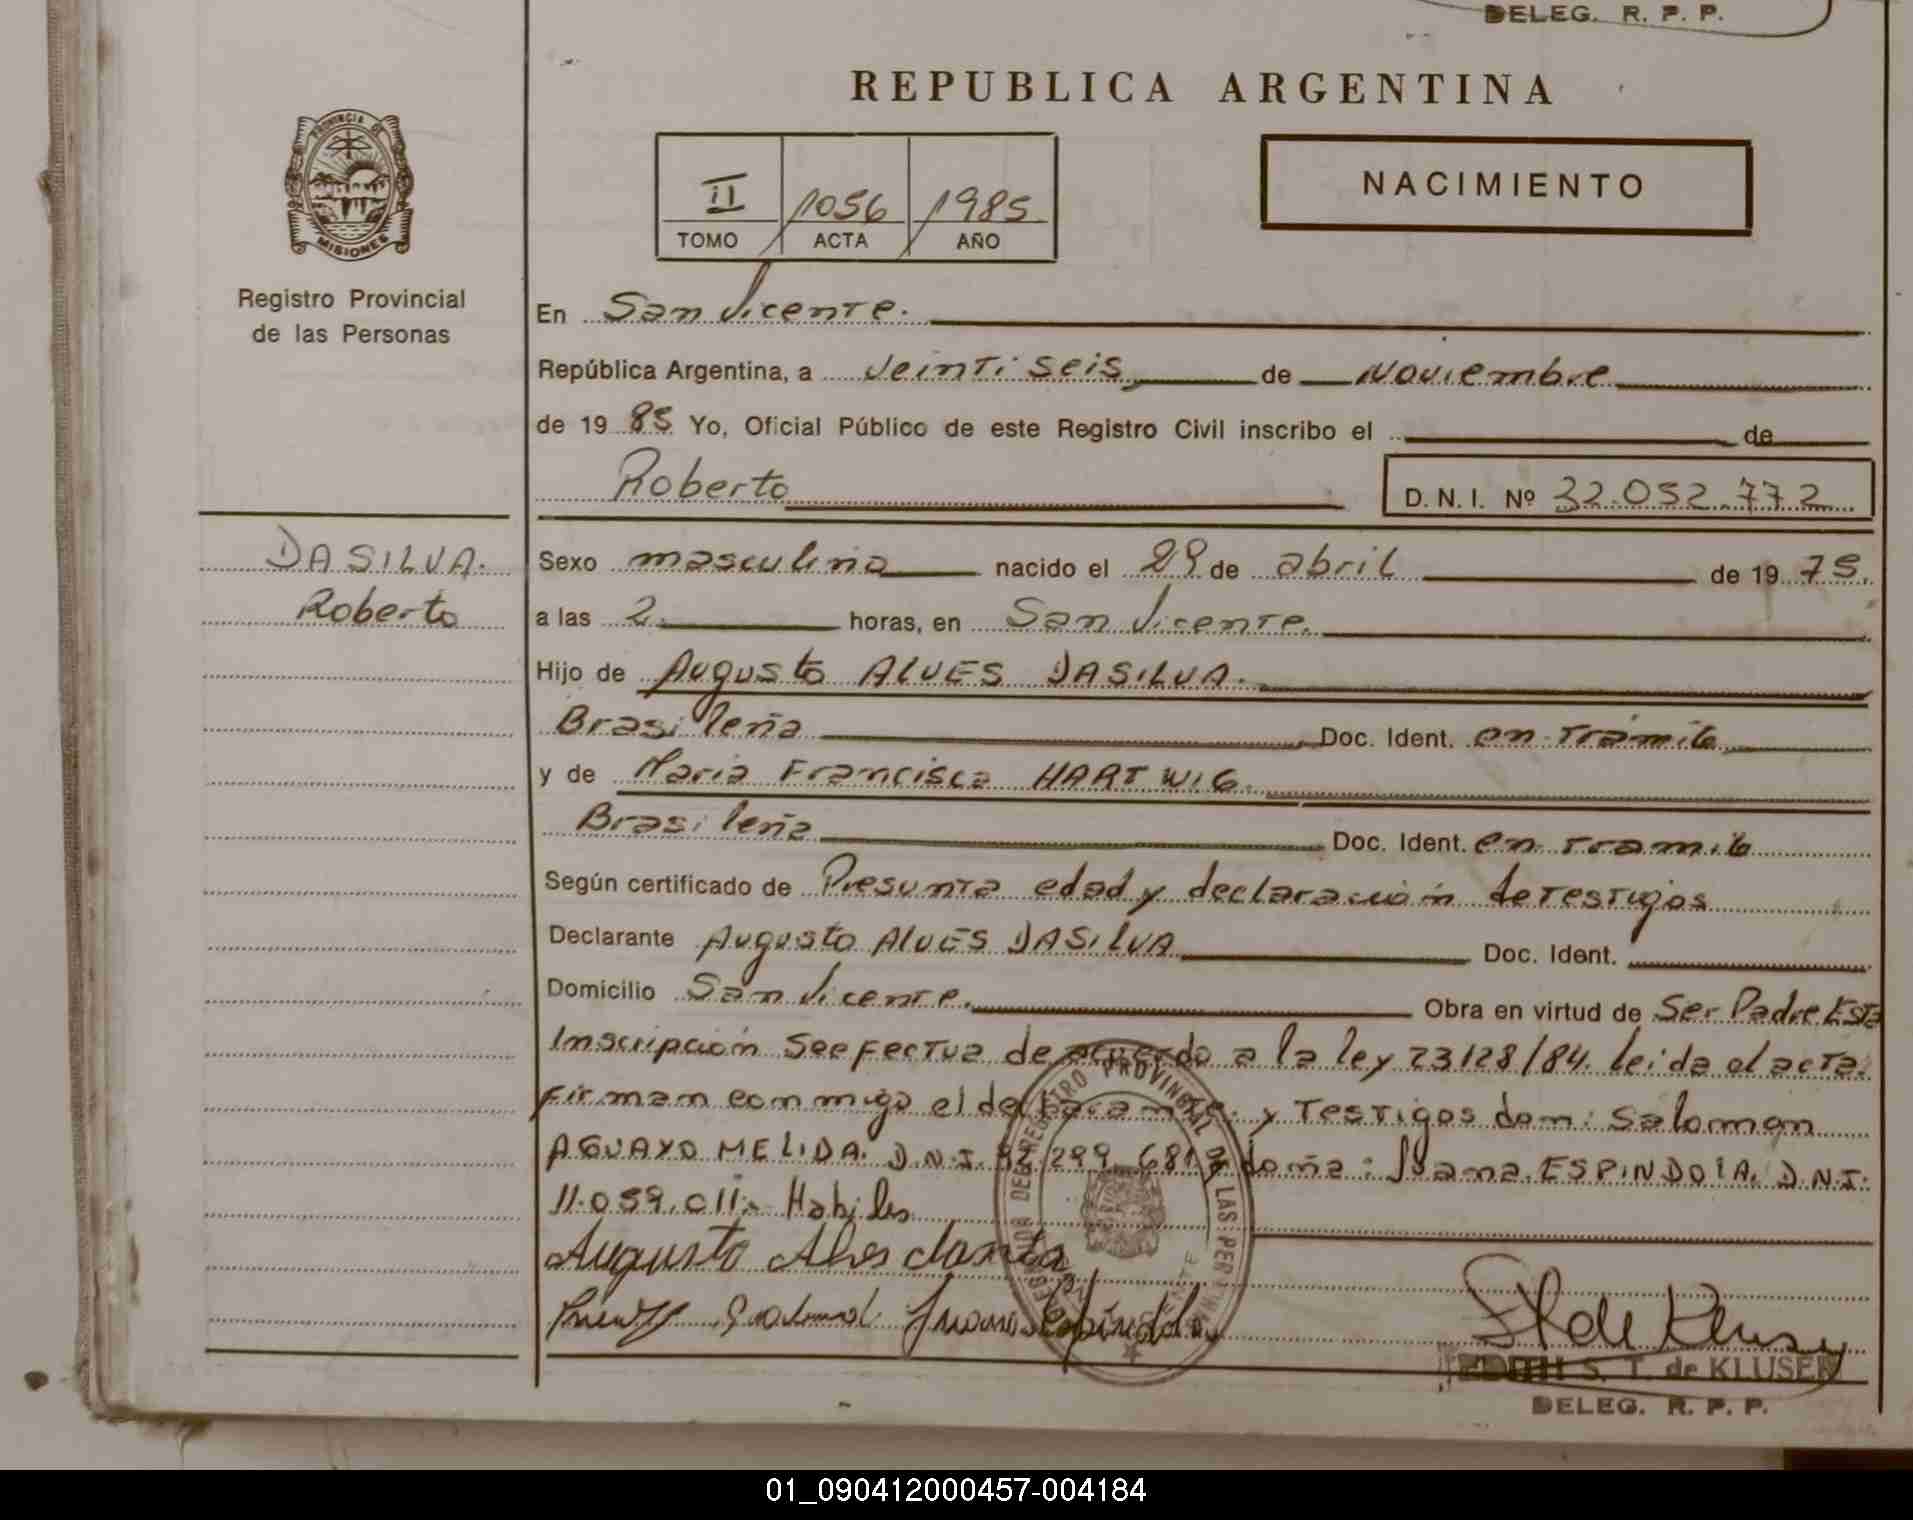 DELEG. R. P. P.
REPUBLICA ARGENTINA
PROVINCIA DE
MISIONES
Registro Provincial
de las Personas
II 1056 1985
TOMO ACTA AÑO
NACIMIENTO
En San Vicente.
República Argentina, a veinti seis de Noviembre
de 19 85 Yo, Oficial Público de este Registro Civil inscribo el de
Roberto
D. N. I. Nº 32.052.772
DASILVA.
Roberto
Sexo masculino nacido el 29 de abril de 19 75.
a las 2 horas, en San Vicente.
Hijo de Augusto ALVES DASILVA.
Brasileña Doc. Ident. en tramite
y de Maria Francisca HARTWIG.
Brasileña Doc. Ident. en tramite
Según certificado de Presunta edad y declaración de testigos
Declarante Augusto ALVES DASILVA Doc. Ident.
Domicilio San Vicente. Obra en virtud de Ser Padre Esta
Inscripción se efectua de acuerdo a la ley 23128/84. leida el acta.
Firman conmigo el declarante. y Testigos don: Salomon
AGUAYO MELIDA. D.N.I. 92 299 681 doña: Juana ESPINDOLA. D.N.I.
11.059.011.- Habiles
Augusto Alves
Juana Espindola
REGISTRO PROVINCIAL DE LAS PER
EDITH S. T. de KLUSER
DELEG. R. P. P.
01_090412000457-004184